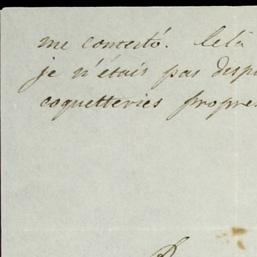 me concerté. Celà
je n'étais pas disp
coquetteries propre